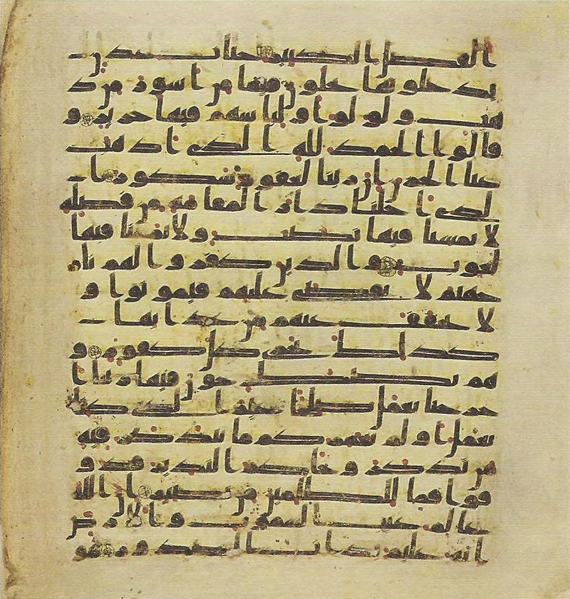 الفضل الكبير جنات عدن
يدخلونها يحلون فيها من اسور من ذ
هب ولولوا ولباسهم فيها حرير و
قالوا الحمد لله الذي اذهب
عنا الحزن ان ربنا لغفور شكور ا
لذي احلنا دار المقامه من فضله
لا يمسنا فيها نصب ولا يمسنا فيها
لغوب والذين كفروا لهم نار
جهنم لا يقضي عليهم فيموتوا و
لا يخفف عنهم من عذابها
كذلك نجزي كل كفور و
هم يصطرخون فيها ربنا ا
خرجنا نعمل صلحا غير الذي كنا
نعمل اولم نعمركم ما يتذكر فيه
من تذكر وجاكم النذير فذو
قوا فما للظلمين من نصير ان الله
علم غيب السموت والارض
انه عليم بذات الصدور هو